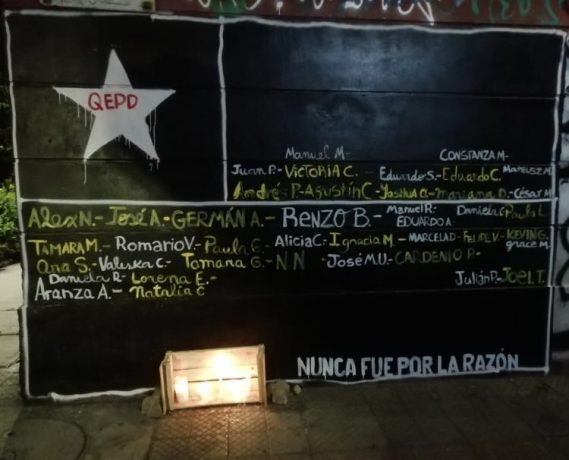 QEPD
Manuel M-
CONSTANZA M-
Juan P.- VICTORIA C. - Eduardo S.- Eduardo C. MATEUSZ M.
André P- AgustínC - Yoshua O.- Mariana D.- CésarM
AlexN.- José A- GERMÁN A.- RENZO B.- Manuel R.- Daniela C Paula L.
EDUARDO A
TÁMARA M.- Romario V.- Paula C. AliciaC- Ignacia M- MARCELA D- FELIPE V- KEVIN G.
grace M.
Ana S.- Valeska C.- Tamara G.- NN - José M.U- CARDENIO P-
Daniela R- Lorena E.- Julián P- JOEL T.
Aranza A.- Natalia C
NUNCA FUE POR LA RAZÓN